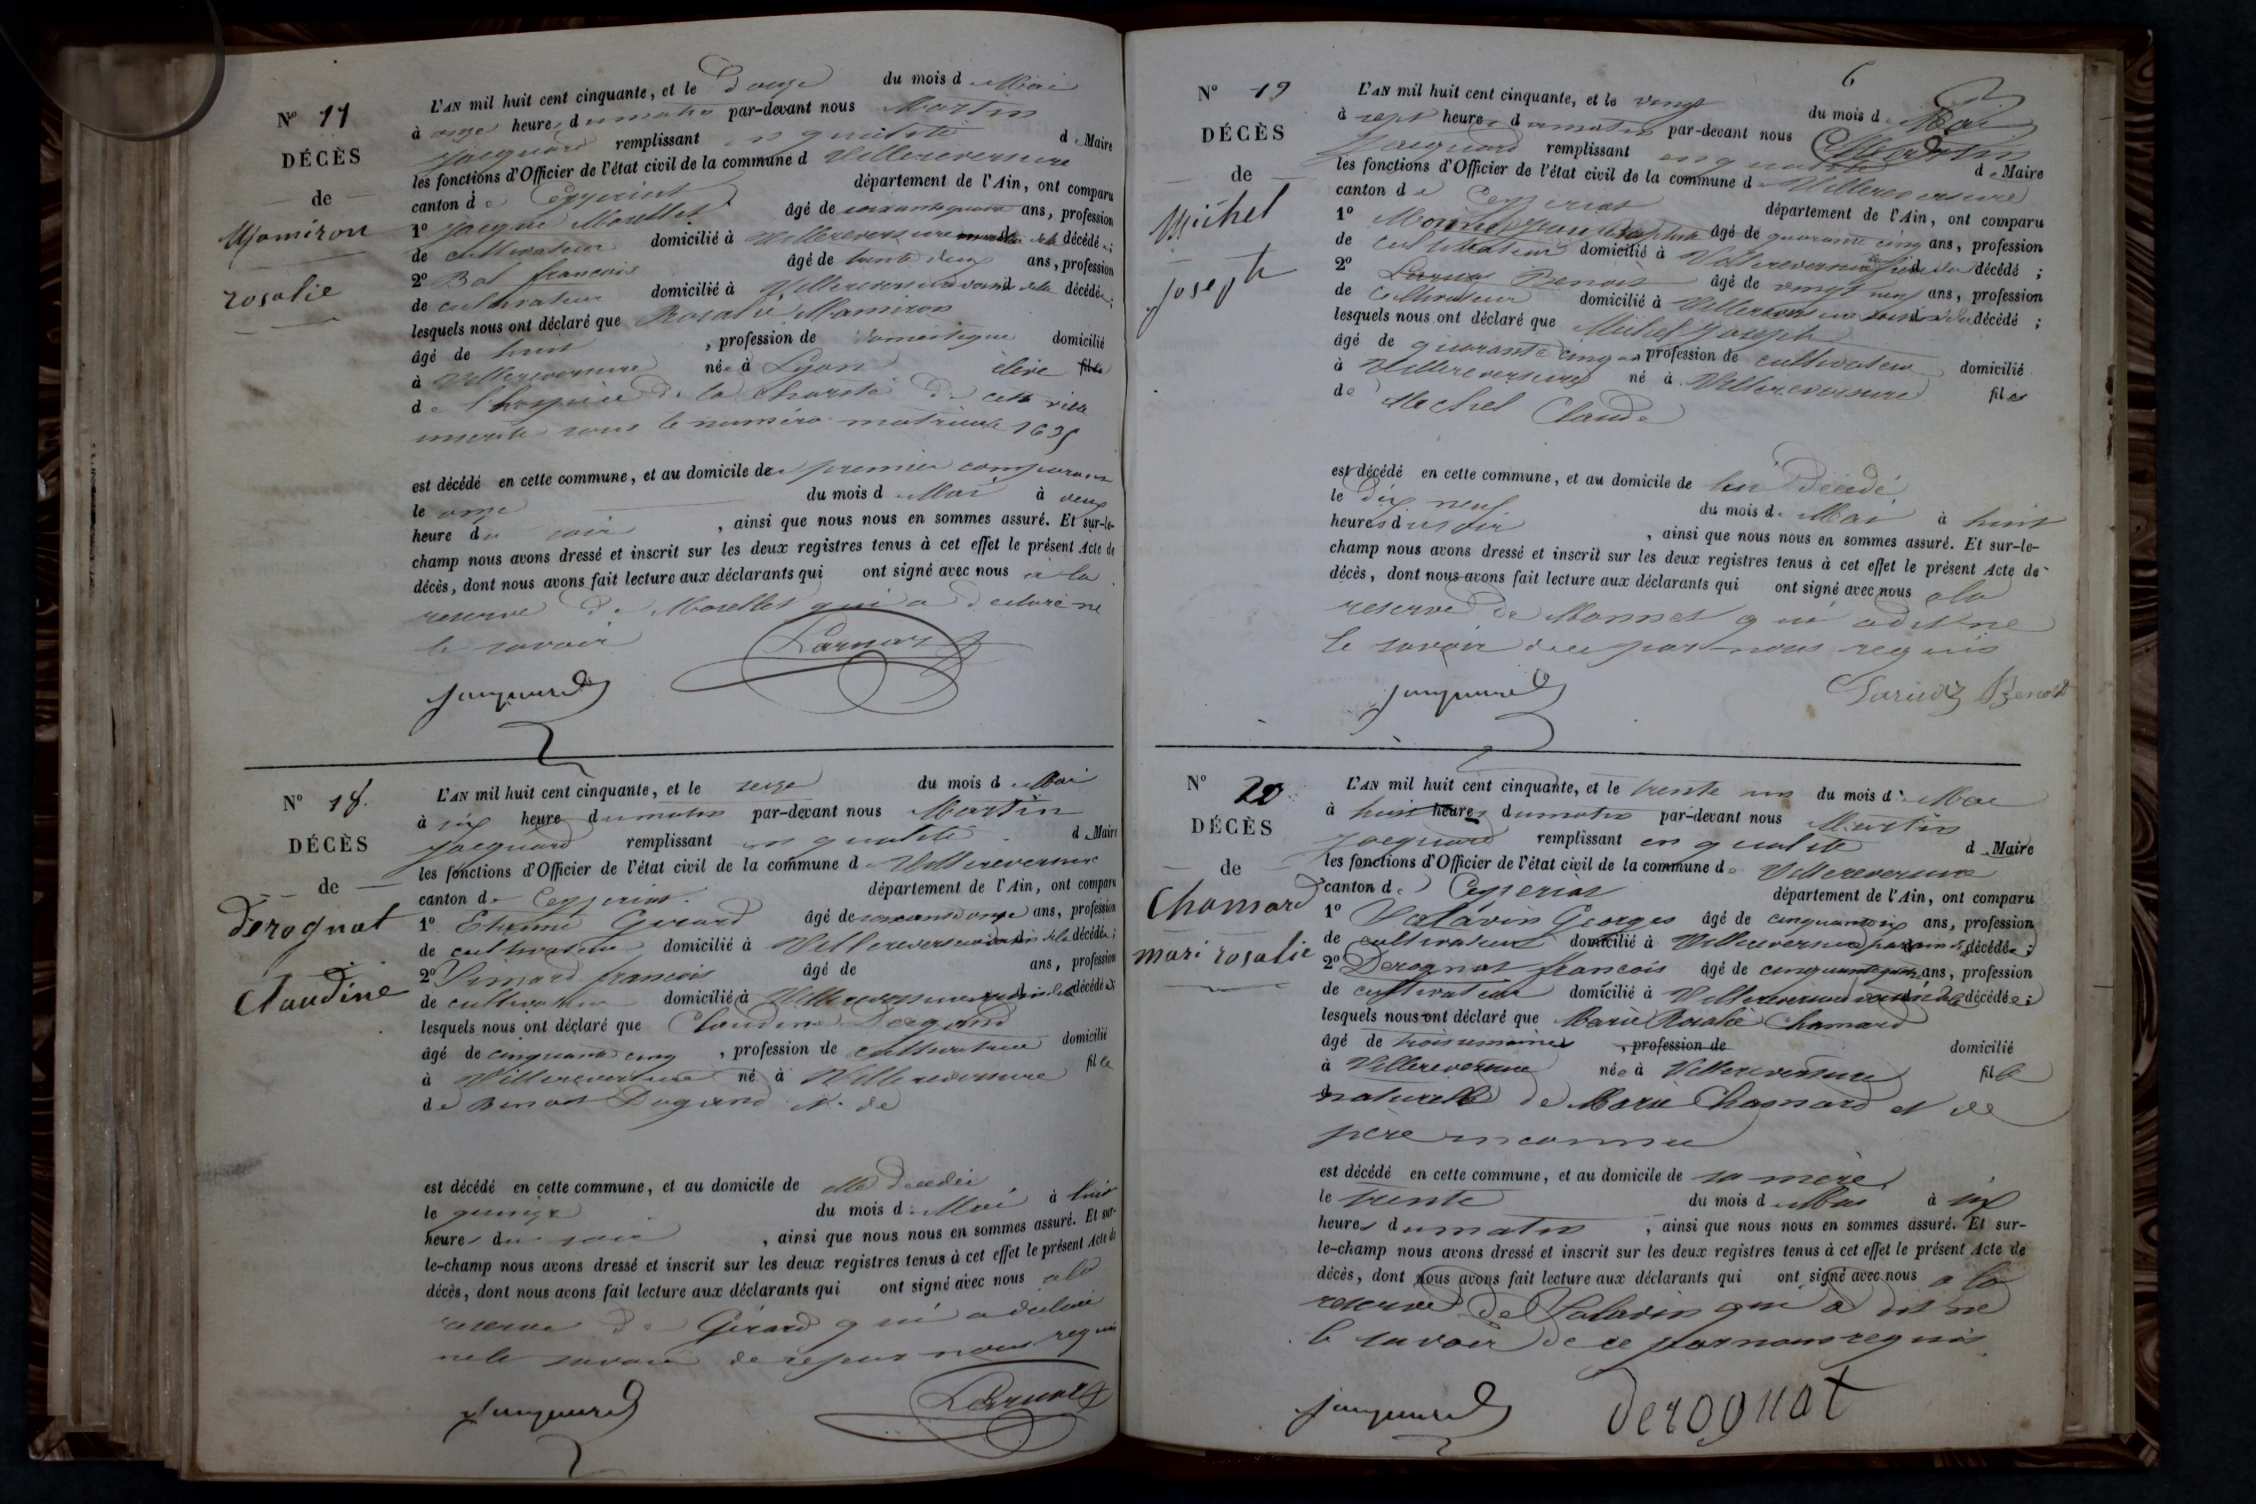 N° 17
DÉCÈS
de
Mamiron
rosalie
L'AN mil huit cent cinquante, et le Douze du mois de Mai
à onze heures du matin par-devant nous Martin
Jacquard remplissant en qualité de Maire
les fonctions d'Officier de l'état civil de la commune de Villereversure
canton de Ceyzeriat département de l'Ain, ont comparu
1° Jacque Morellet âgé de ans, profession
de cultivateur domicilié à Villereversure décédée;
2° Bal francois âgé de trente deux ans, profession
de cultivateur domicilié à Villereversure voisin de la décédée;
lesquels nous ont déclaré que Rosalie Mamiron
âgé de huit , profession de Domestique domicilié
à Villereversure née à Lyon élève fille
de l'hospice de la Charité De cette ville
inscrite sous le numéro matricule 1635
est décédé en cette commune, et au domicile de premier comparant
le onze du mois de Mai à deux
heure du soir , ainsi que nous nous en sommes assuré. Et sur-le-
champ nous avons dressé et inscrit sur les deux registres tenus à cet effet le présent Acte de
décès, dont nous avons fait lecture aux déclarants qui ont signé avec nous à la
reserve De Morellet qui a Declaré ne
le savoir
Jacquard
N° 18.
DÉCÈS
de
derognat
Claudine
L'AN mil huit cent cinquante, et le seize du mois de Mai
à six heure du matin par-devant nous Martin
Jacquard remplissant en qualité de Maire
les fonctions d'Officier de l'état civil de la commune de Villereversure
canton de Ceyzeriat département de l'Ain, ont comparu
1° Etienne Gerard âgé de soixante onze ans, profession
de cultivateur domicilié à Villereversure voisin de la décédée;
2° francois âgé de ans, profession
de cultivateur domicilié à Villereversure décédée
lesquels nous ont déclaré que Claudine
âgé de cinquante cinq , profession de cultivatrice domicilié
à Villereversure né à Villereversure fille
de Benoit et de
est décédé en cette commune, et au domicile de elle Decedée
le quinze du mois de Mai à huit
heures du soir , ainsi que nous nous en sommes assuré. Et sur-
le-champ nous avons dressé et inscrit sur les deux registres tenus à cet effet le présent Acte de
décès, dont nous avons fait lecture aux déclarants qui ont signé avec nous a la
reserve De Gérard qui a declaré
ne le savoir de ce par nous requis
Jacquard
6
N° 19
DÉCÈS
de
Michel
joseph
L'AN mil huit cent cinquante, et le vingt du mois de Mai
à sept heures du matin par-devant nous Martin
Jacquard remplissant en qualité de Maire
les fonctions d'Officier de l'état civil de la commune de Villereversure
canton de Ceyzeriat département de l'Ain, ont comparu
1° Monnet âgé de quarante cinq ans, profession
de cultivateur domicilié à Villereversure décédé ;
2° Benoit âgé de vingt neuf ans, profession
de Cultivateur domicilié à Villereversure voisin du décédé ;
lesquels nous ont déclaré que Michel Joseph
âgé de quarante cinq ans profession de cultivateur domicilié
à Villereversure né à Villereversure fils
de Michel Claude
est décédé en cette commune, et au domicile de lui Décédé,
le Dix neuf du mois de Mai à huit
heures du soir , ainsi que nous nous en sommes assuré. Et sur-le-
champ nous avons dressé et inscrit sur les deux registres tenus à cet effet le présent Acte de
décès, dont nous avons fait lecture aux déclarants qui ont signé avec nous a la
reserve de Monnet qui a dit ne
le savoir de ce par nous requis
Jacquard Benoit
N° 20
DÉCÈS
de
Chamard
mari rosalie
L'AN mil huit cent cinquante, et le trente un du mois de Mai
à huit heures du matin par-devant nous Martin
Jacquard remplissant en qualité de Maire
les fonctions d'Officier de l'état civil de la commune de Villereversure
canton de Ceyzeriat département de l'Ain, ont comparu
1° Palavin Georges âgé de cinquante six ans, profession
de cultivateur domicilié à Villereversure décédée;
2° Derognat francois âgé de ans, profession
de cultivateur domicilié à Villereversure voisin de la décédée;
lesquels nous ont déclaré que Marie Rosalie Chamard
âgé de trois semaines , profession de domicilié
à Villereversure née à Villereversure fille
naturelle de Marie Chamard et de
père inconnu
est décédé en cette commune, et au domicile de sa mère
le trente du mois de Mai à six
heures du matin , ainsi que nous nous en sommes assuré. Et sur-
le-champ nous avons dressé et inscrit sur les deux registres tenus à cet effet le présent Acte de
décès, dont nous avons fait lecture aux déclarants qui ont signé avec nous a la
reserve de Palavin qui a dit ne
le savoir de ce par nous requis.
Jacquard derognat